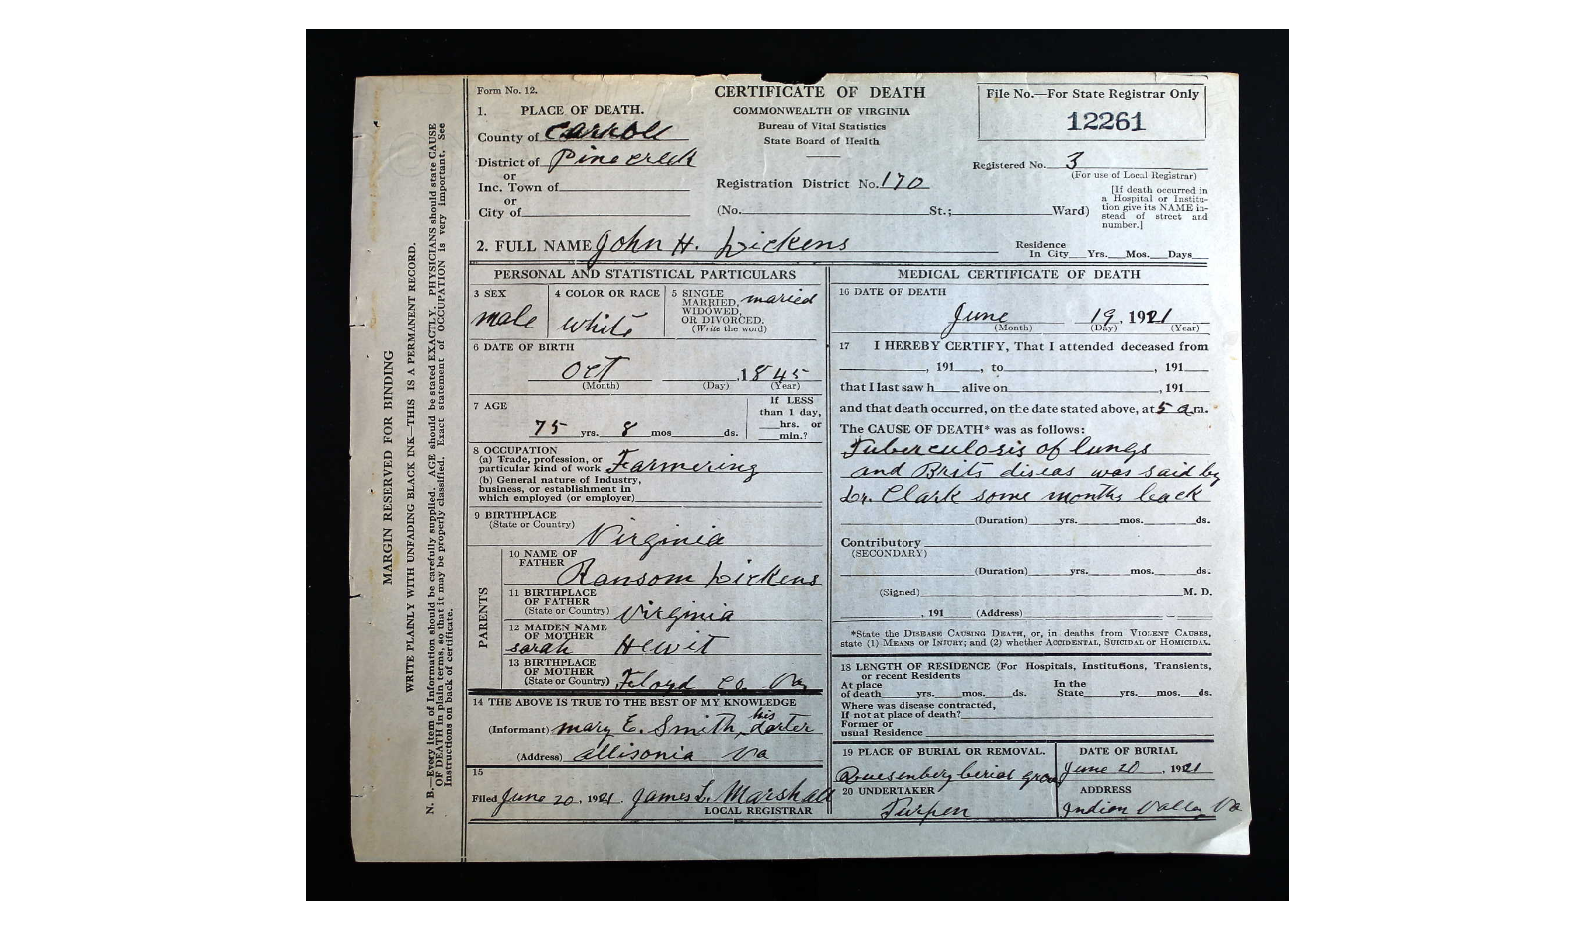 Form No. 12.
CERTIFICATE OF DEATH
COMMONWEALTH OF VIRGINIA
Bureau of Vital Statistics
State Board of Health
File No.—For State Registrar Only
12261
1. PLACE OF DEATH.
County of Carroll
District of Pinecreek
or
Inc. Town of
or
City of
Registration District No. 170
Registered No. 3
(For use of Local Registrar)
(No. St.; Ward)
[If death occurred in
a Hospital or Institu-
tion give its NAME in-
stead of street and
number.]
2. FULL NAME John H. Dickens
Residence
In City Yrs. Mos. Days
PERSONAL AND STATISTICAL PARTICULARS
3 SEX
male
4 COLOR OR RACE
white
5 SINGLE
MARRIED,
WIDOWED,
OR DIVORCED.
(Write the word)
maried
6 DATE OF BIRTH
Oct , 1845
(Month) (Day) (Year)
7 AGE
75 yrs. 8 mos ds.
If LESS
than 1 day,
hrs. or
min.?
8 OCCUPATION
(a) Trade, profession, or
particular kind of work Farmering
(b) General nature of Industry,
business, or establishment in
which employed (or employer)
9 BIRTHPLACE
(State or Country)
Virginia
PARENTS
10 NAME OF
FATHER
Ransom Dickens
11 BIRTHPLACE
OF FATHER
(State or Country) Virginia
12 MAIDEN NAME
OF MOTHER
sarah Hewit
13 BIRTHPLACE
OF MOTHER
(State or Country) Floyd co. Va
14 THE ABOVE IS TRUE TO THE BEST OF MY KNOWLEDGE
(Informant) mary E. Smith, his dorter
(Address) allisonia Va
15
Filed June 20, 1921. James L. Marshall
LOCAL REGISTRAR
MEDICAL CERTIFICATE OF DEATH
16 DATE OF DEATH
June 19, 1921
(Month) (Day) (Year)
17 I HEREBY CERTIFY, That I attended deceased from
, 191 , to , 191
that I last saw h alive on , 191
and that death occurred, on the date stated above, at 5 a.m.
The CAUSE OF DEATH* was as follows:
Tuberculosis of lungs
and Brits diseas was said by
Dr. Clark some months back
(Duration) yrs. mos. ds.
Contributory
(SECONDARY)
(Duration) yrs. mos. ds.
(Signed) M. D.
, 191 (Address)
*State the DISEASE CAUSING DEATH, or, in deaths from VIOLENT CAUSES,
state (1) MEANS OF INJURY; and (2) whether ACCIDENTAL, SUICIDAL or HOMICIDAL.
18 LENGTH OF RESIDENCE (For Hospitals, Institutions, Transients,
or recent Residents
At place
of death yrs. mos. ds.
In the
State yrs. mos. ds.
Where was disease contracted,
If not at place of death?
Former or
usual Residence
19 PLACE OF BURIAL OR REMOVAL.
Quesenbery berial grou
DATE OF BURIAL
June 20, 1921
20 UNDERTAKER
Turpen
ADDRESS
Indian Valley Va
MARGIN RESERVED FOR BINDING
WRITE PLAINLY WITH UNFADING BLACK INK—THIS IS A PERMANENT RECORD.
N. B.—Every item of Information should be carefully supplied. AGE should be stated EXACTLY. PHYSICIANS should state CAUSE
OF DEATH in plain terms, so that it may be properly classified. Exact statement of OCCUPATION is very important. See
Instructions on back of certificate.